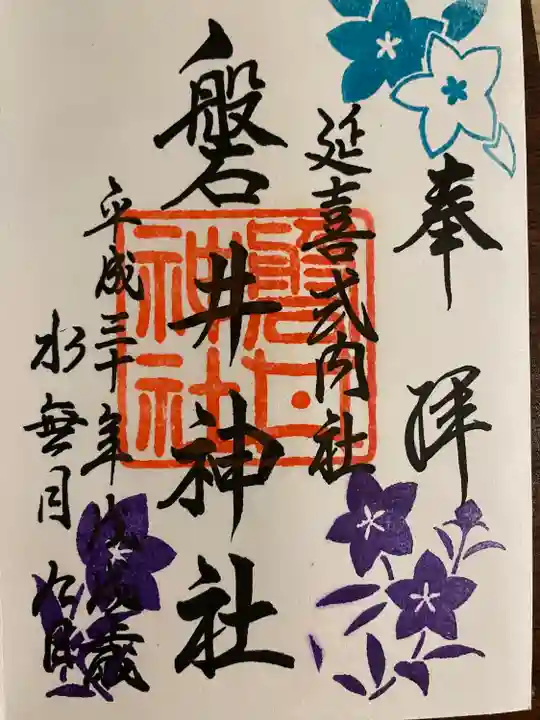 奉拝
延喜式内社
磐井神社
磐井神社
平成三十年戊戌歳
水無月